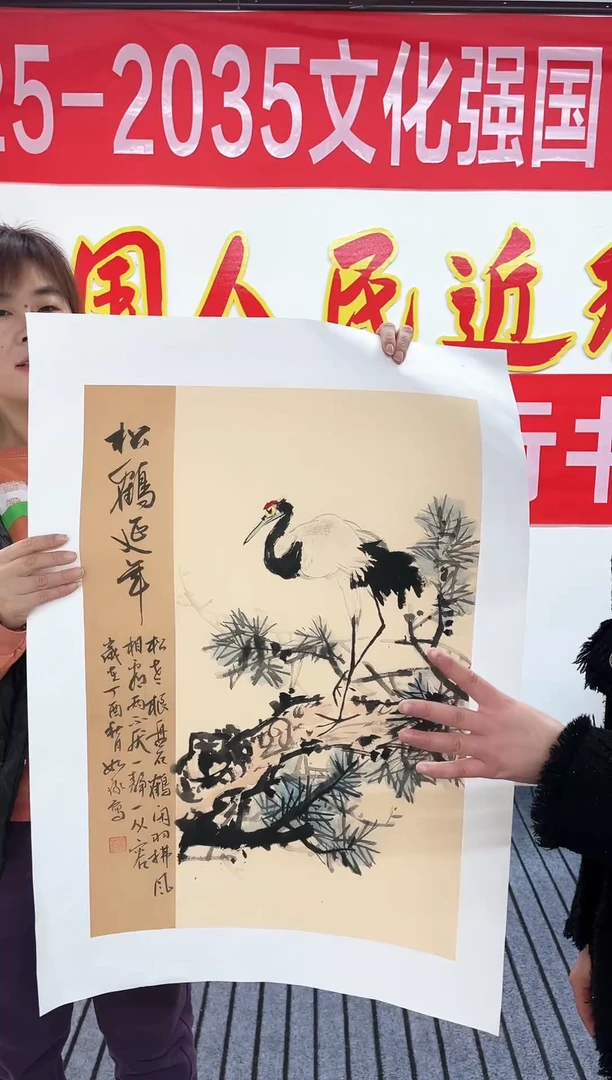 25-2035文化强国
国人民近
行书
松鶴延年
松老根盘石鶴闲羽拂风
相看两不厌一静一从容
岁在丁酉秋月如写